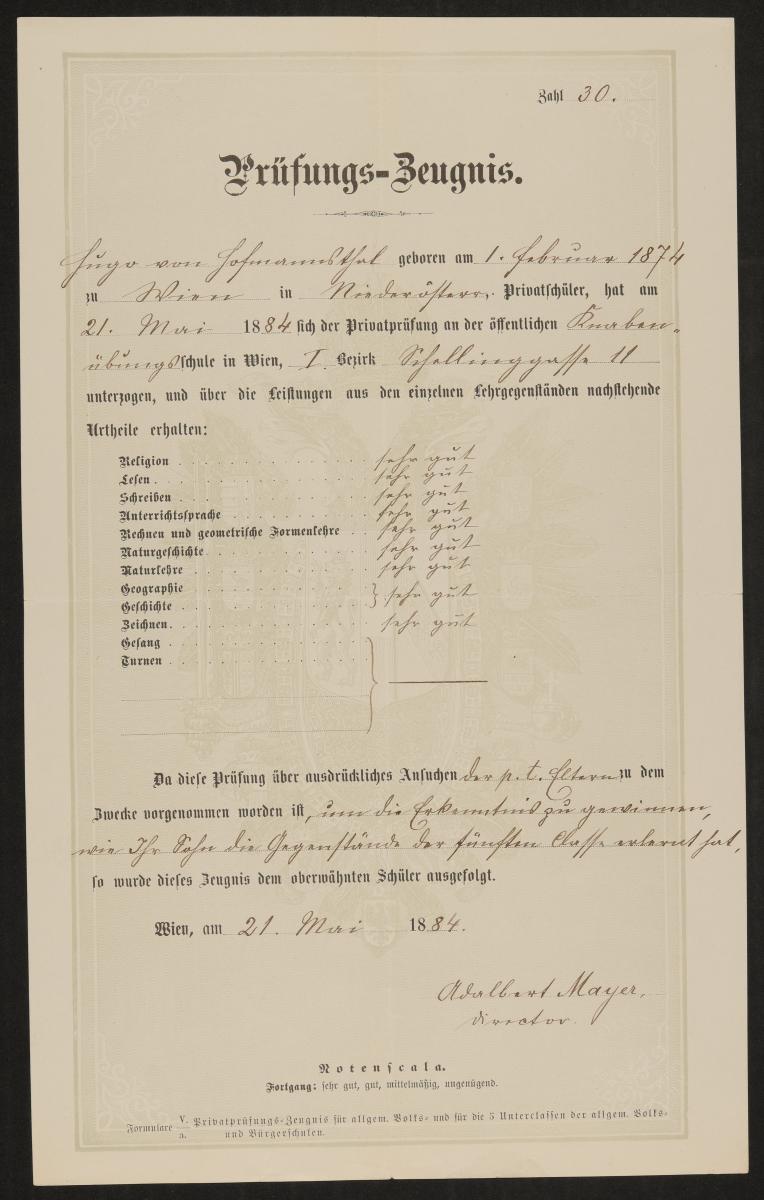 Zahl 30.
Prüfungs-Zeugnis.
Hugo von Hofmannsthal geboren am 1. Februar 1874
zu Wien in Niederösterr. Privatschüler, hat am
21. Mai 1884 sich der Privatprüfung an der öffentlichen Knaben-
übungsschule in Wien, I. Bezirk Schellinggasse 11
unterzogen, und über die Leistungen aus den einzelnen Lehrgegenständen nachstehende
Urtheile erhalten:
Religion . . . . . . . . . . . sehr gut
Lesen . . . . . . . . . . . sehr gut
Schreiben . . . . . . . . . . . sehr gut
Unterrichtssprache . . . . . . . . . sehr gut
Rechnen und geometrische Formenlehre . . sehr gut
Naturgeschichte . . . . . . . . . . sehr gut
Naturlehre . . . . . . . . . . . sehr gut
Geographie . . . . . . . . . . .
Geschichte . . . . . . . . . . . } sehr gut
Zeichnen . . . . . . . . . . . sehr gut
Gesang . . . . . . . . . . .
Turnen . . . . . . . . . . . } —
Da diese Prüfung über ausdrückliches Ansuchen der p. t. Eltern zu dem
Zwecke vorgenommen worden ist, um die Erkenntnis zu gewinnen,
wie Ihr Sohn die Gegenstände der fünften Classe erlernt hat,
so wurde dieses Zeugnis dem oberwähnten Schüler ausgefolgt.
Wien, am 21. Mai 1884.
Adalbert Mayer,
Director.
Notenscala.
Fortgang: sehr gut, gut, mittelmäßig, ungenügend.
Formulare V./a. Privatprüfungs-Zeugnis für allgem. Volks- und für die 5 Unterclassen der allgem. Volks-
und Bürgerschulen.